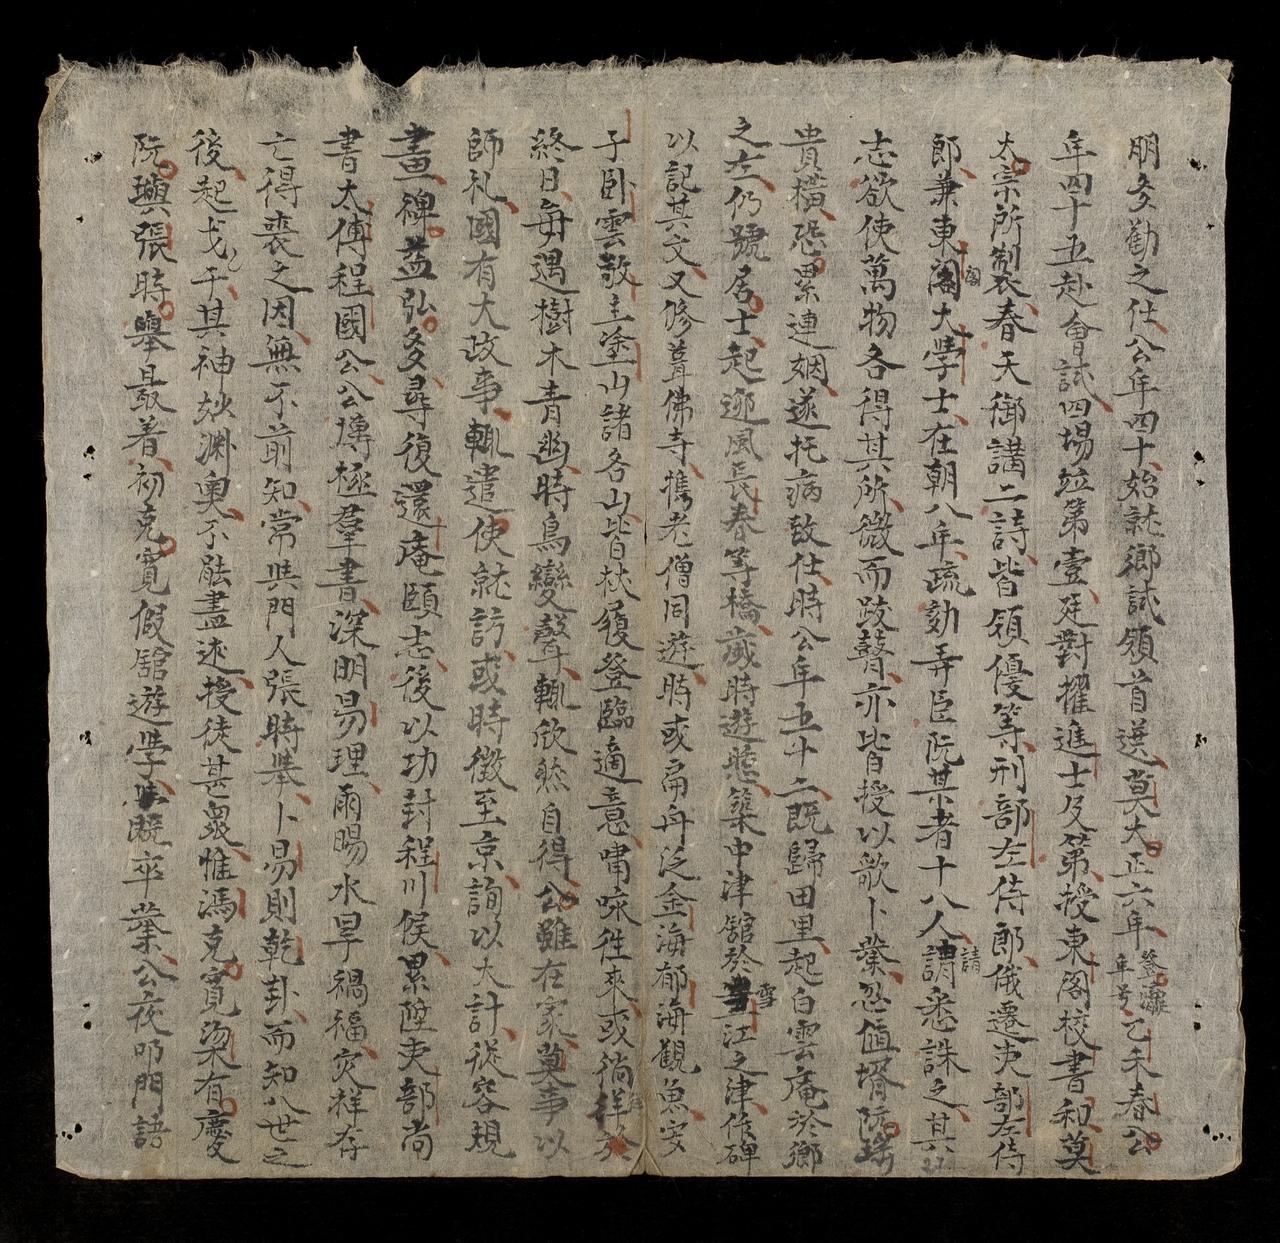 朋多勸之仕公年四十始就鄉試領首選莫大正六年登瀛年号乙未春公
年四十五赴會試四場並第壹廷對擢進士及第授東閣校書和莫
太宗所製春天御講二詩皆領優等刑部左侍郎俄遷吏部左侍
郎兼東閣閣大學士在朝八年疏劾弄臣阮某者十八人請請悉誅之其
志欲使萬物各得其所微而跂瞽亦皆授以歌卜業忽值壻阮瑤
貴橫恐累連姻遂托病致仕時公年五十二既歸田里起白雲庵於鄉
之左仍號居士起迎風長春等橋歲時遊憇築中津舘於雪江之津作碑
以記其文又修葺佛寺携老僧同遊時或扁舟泛金海郁海觀魚安
子卧雲敬主塗山諸各山皆杖履登臨適意嘯咏往來或徜徉於
終日每遇樹木青幽時鳥變聲輒欣然自得公雖在家莫事以
師礼國有大政事輒遣使就訪或時徵至京詢以大計從容規
畫禆益弘多尋復還庵頤志後以功封程川侯累陞吏部尚
書太傅程國公公博極羣書深明易理雨暘水旱禍福灾祥存
亡得喪之因無不前知常與門人張時舉卜易則乾卦而知八世之
後起戈干其神妙淵奧不能盡述授徒甚衆惟馮克寬梁有慶
阮璵張時舉最着初克寬假舘遊學旣卒業公夜叩門語